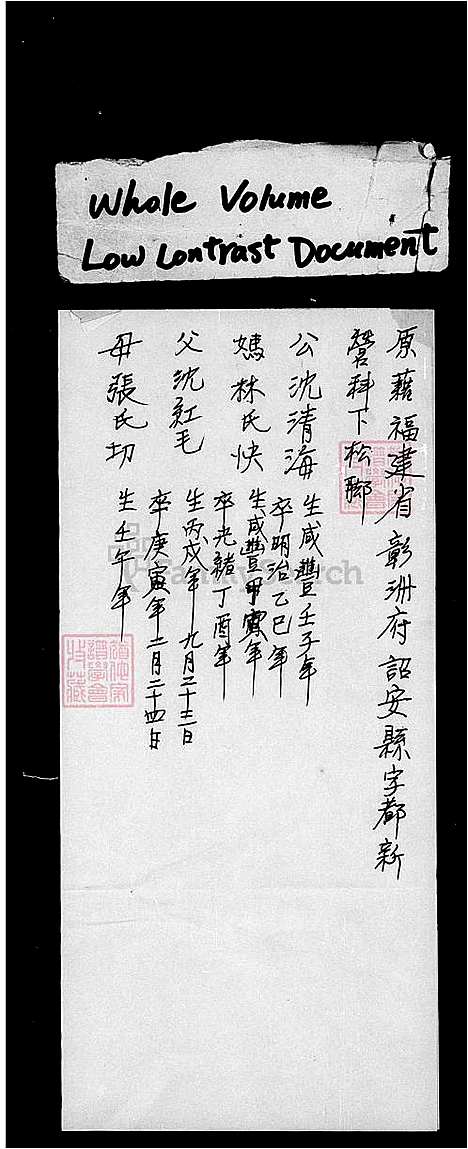 Whole Volume
Low Contrast Document
原藉福建省彰洲府詔安縣字都新
營科下松腳
公沈清海
生咸豐壬子年
卒明治乙巳年
媽林氏快
生咸豐甲寅年
卒光緒丁酉年
父沈紅毛
生丙戌年九月二十三日
卒庚寅年二月二十四日
母張氏切
生壬午年
FamilySearch